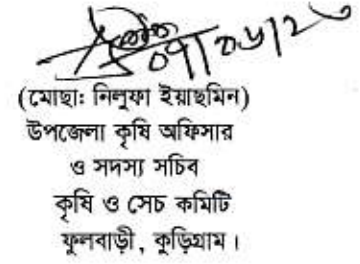 (মোছা: নিলুফা ইয়াছমিন)
উপজেলা কৃষি অফিসার
ও সদস্য সচিব
কৃষি ও সেচ কমিটি
ফুলবাড়ী, কুড়িগ্রাম।